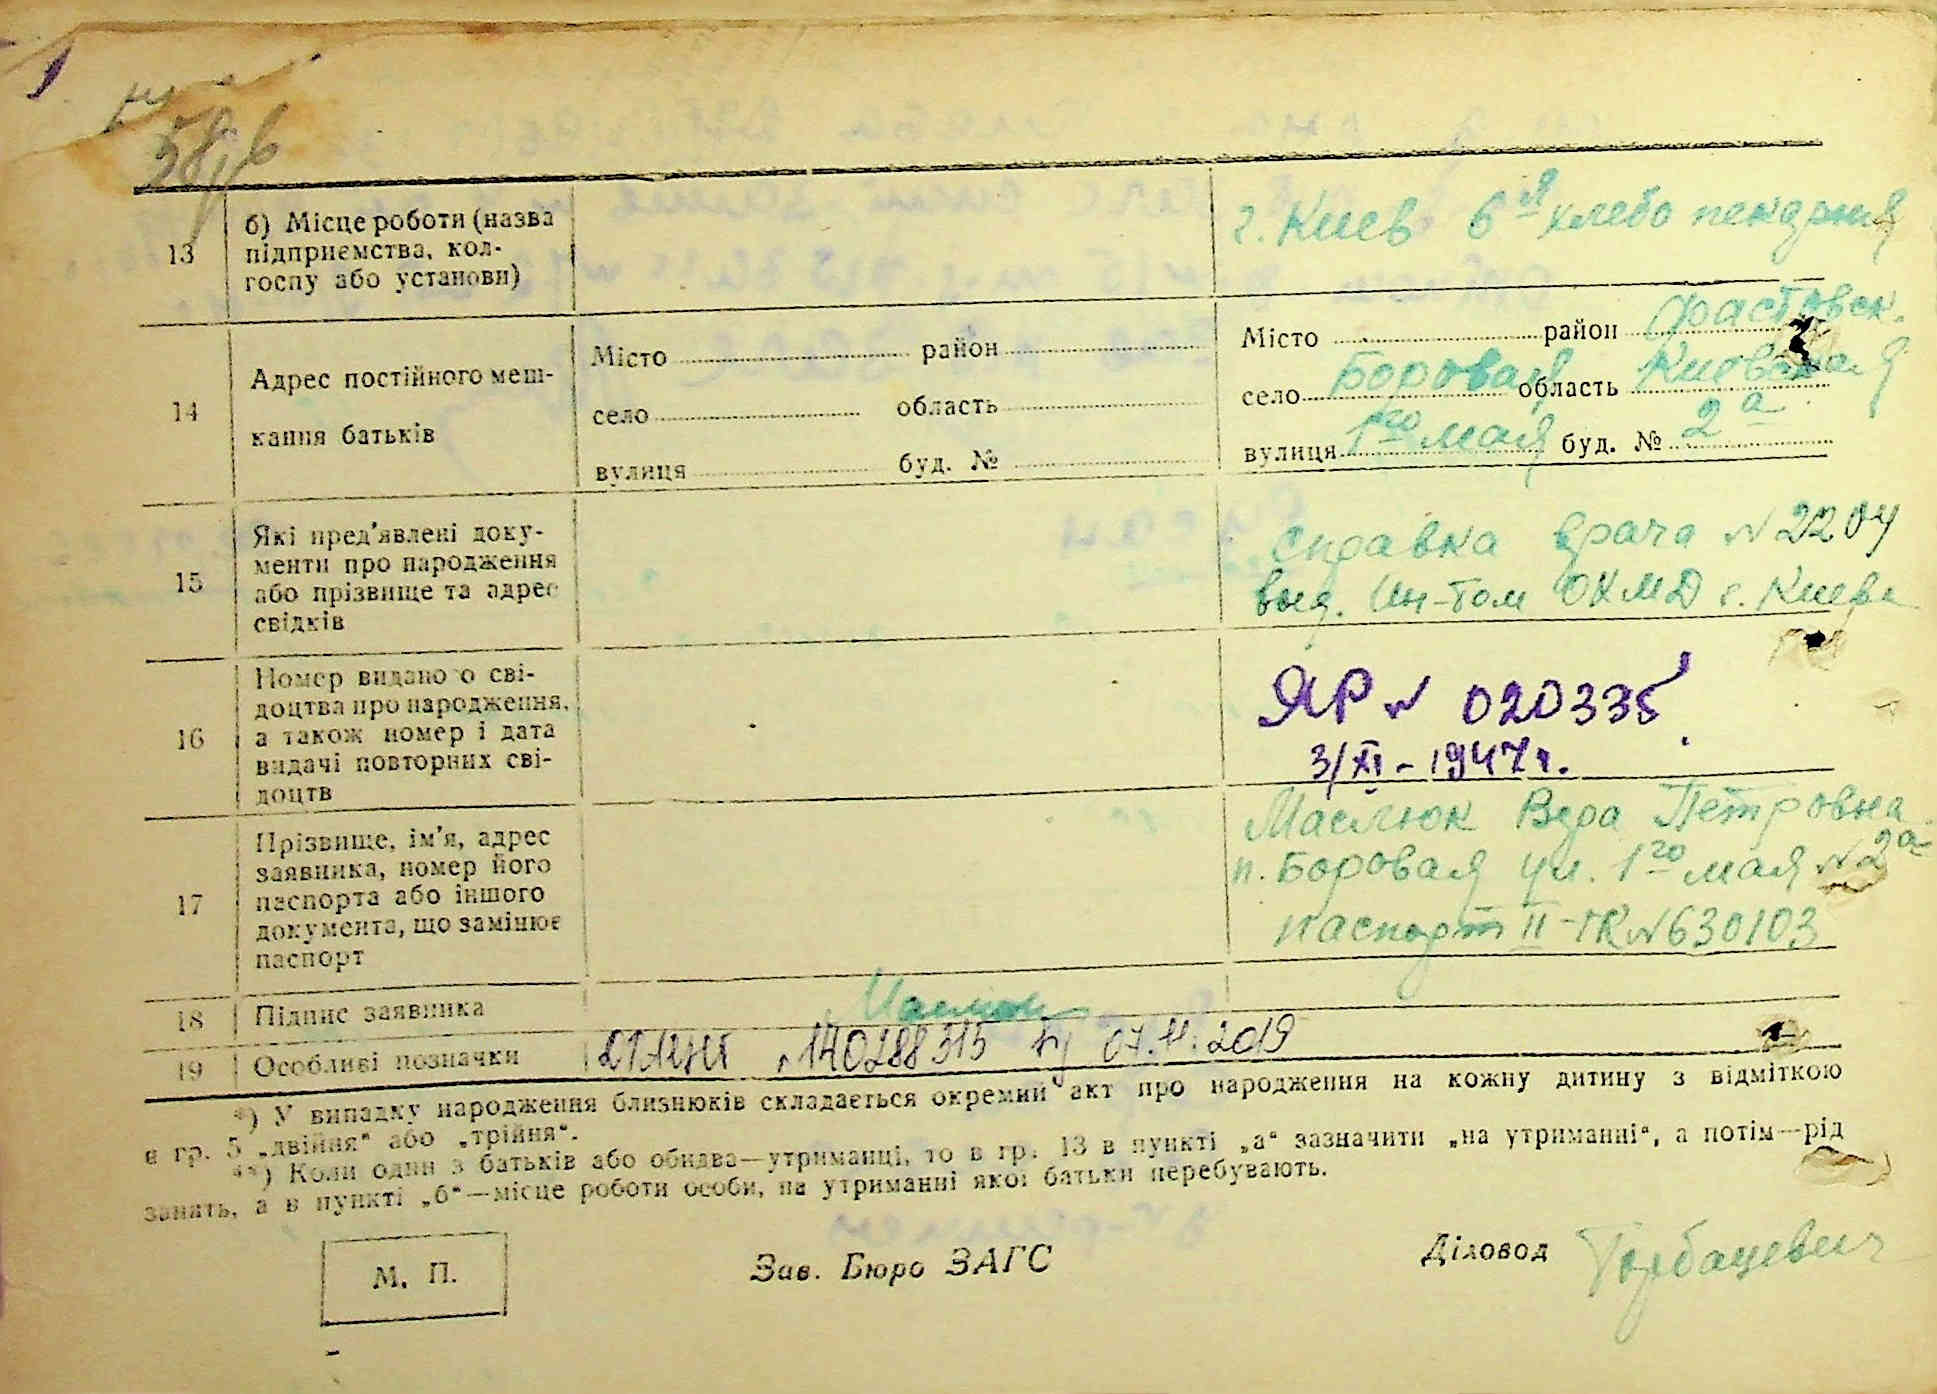 13
б) Місце роботи (назва
підприємства, кол-
госпу або установи)
г. Киев 6я хлебо пекарня
14
Адрес постійного меш-
кання батьків
Місто район
село область
вулиця буд. №
Місто район Фастовск.
село Боровая область Киевская
вулиця 1го мая буд. № 2а
15
Які пред'явлені доку-
менти про народження
або прізвище та адрес
свідків
справка врача № 2204
выд. Ин-том ОХМД г. Киева
16
Номер видано о сві-
доцтва про народження,
а також номер і дата
видачі повторних сві-
доцтв
ЯР № 020335
3/XI - 1947 г.
17
Прізвище, ім'я, адрес
заявника, номер його
паспорта або іншого
документа, що замінює
паспорт
Маслюк Вера Петровна
п. Боровая ул. 1го мая № 2а
паспорт II-ТК № 630103
18
Підпис заявника
Маслюк
19
Особливі позначки
140288315 07.11.2019
*) У випадку народження близнюків складається окремий акт про народження на кожну дитину з відміткою
в гр. 5 „двійня" або „трійня".
**) Коли один з батьків або обидва—утриманці, то в гр. 13 в пункті „а" зазначити „на утриманні", а потім—рід
занять, а в пункті „б"—місце роботи особи, на утриманні якої батьки перебувають.
М. П.
Зав. Бюро ЗАГС
Діловод Горбацевич